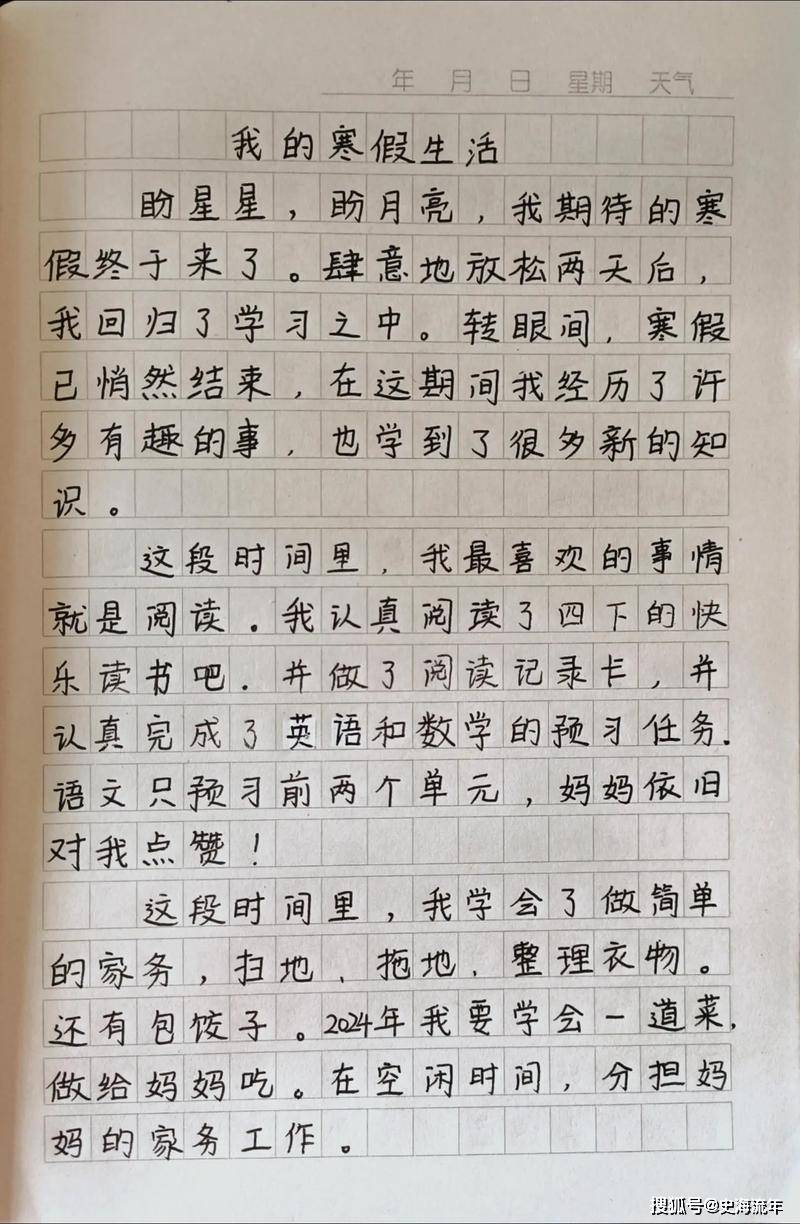 年 月 日 星期 天气
我的寒假生活
盼星星，盼月亮，我期待的寒
假终于来了。肆意地放松两天后，
我回归了学习之中。转眼间，寒假
已悄然结束，在这期间我经历了许
多有趣的事，也学到了很多新的知
识。
这段时间里，我最喜欢的事情
就是阅读.我认真阅读了四下的快
乐读书吧.并做了阅读记录卡，并
认真完成了英语和数学的预习任务.
语文只预习前两个单元，妈妈依旧
对我点赞！
这段时间里，我学会了做简单
的家务，扫地、拖地、整理衣物。
还有包饺子。2024年我要学会一道菜，
做给妈妈吃。在空闲时间，分担妈
妈的家务工作。
搜狐号@史海流年